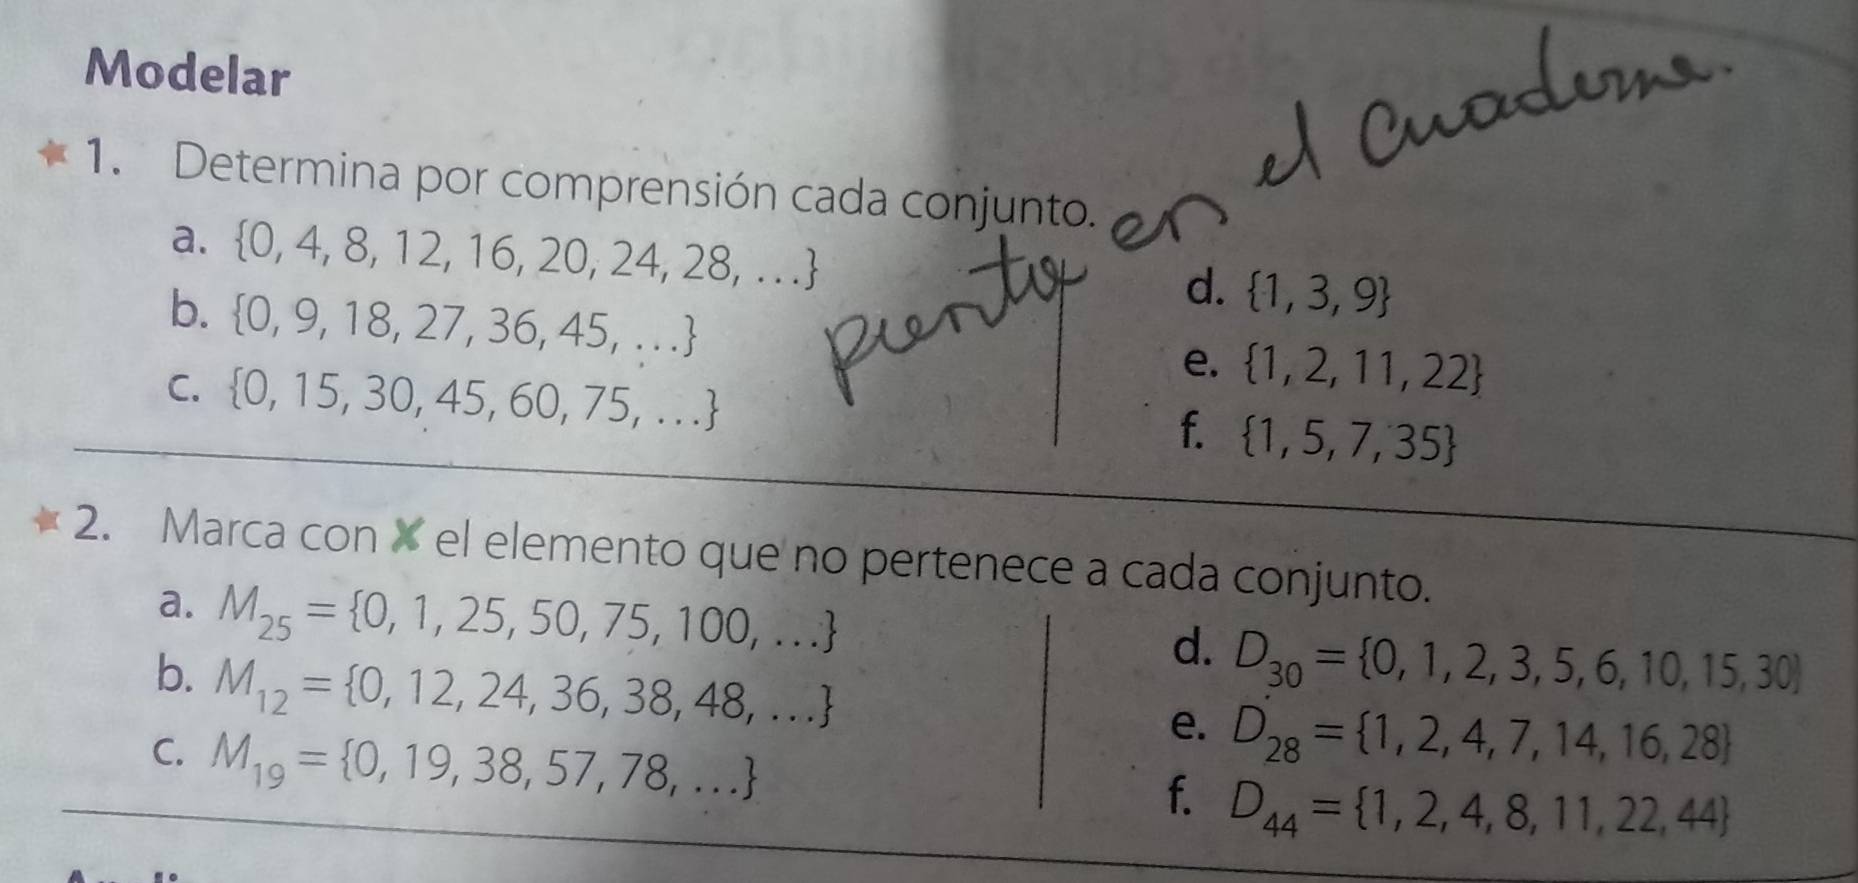 Modelar
1. Determina por comprensión cada conjunto.
en el cuaderno.
a. {0, 4, 8, 12, 16, 20, 24, 28, ...}
b. {0, 9, 18, 27, 36, 45, ...}
c. {0, 15, 30, 45, 60, 75, ...}
d. {1, 3, 9}
e. {1, 2, 11, 22}
f. {1, 5, 7, 35}
2. Marca con ✗ el elemento que no pertenece a cada conjunto.
a. M₂₅ = {0, 1, 25, 50, 75, 100, ...}
b. M₁₂ = {0, 12, 24, 36, 38, 48, ...}
c. M₁₉ = {0, 19, 38, 57, 78, ...}
d. D₃₀ = {0, 1, 2, 3, 5, 6, 10, 15, 30}
e. D₂₈ = {1, 2, 4, 7, 14, 16, 28}
f. D₄₄ = {1, 2, 4, 8, 11, 22, 44}